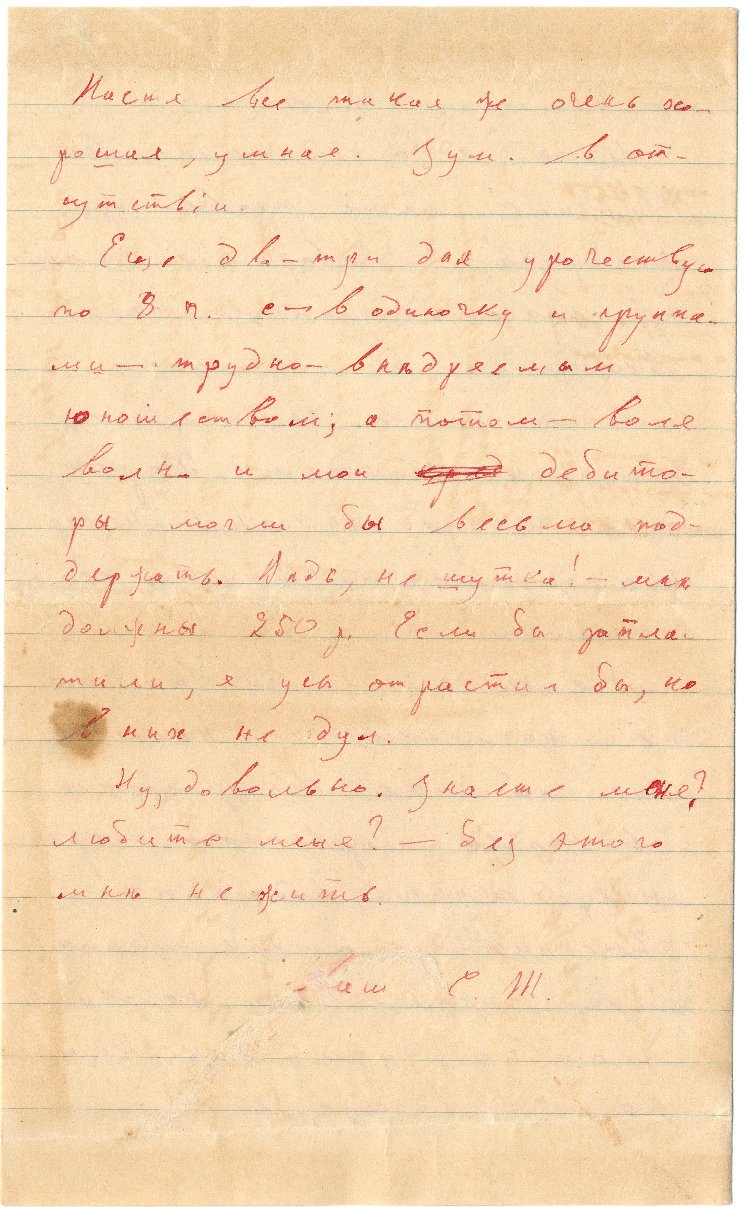 Настя все такая же очень хо-
рошая, умная. Зум. в от-
сутствіи.
Еще два-три дня урочествую
по 8 ч. с — в одиночку и группа-
ми — трудно-внѣдряемым
юношеством; а потом — воля
волн. и мои дебито-
ры могли бы весьма под-
держать. Вѣдь, не шутка! — мнѣ
должны 250 р. Если бы запла-
тили, я усы отрастил бы, но
в них не дул.
Ну, довольно. Знаете мене?
любите меня? — без этого
мнѣ не жить.
Ваш С. Т.